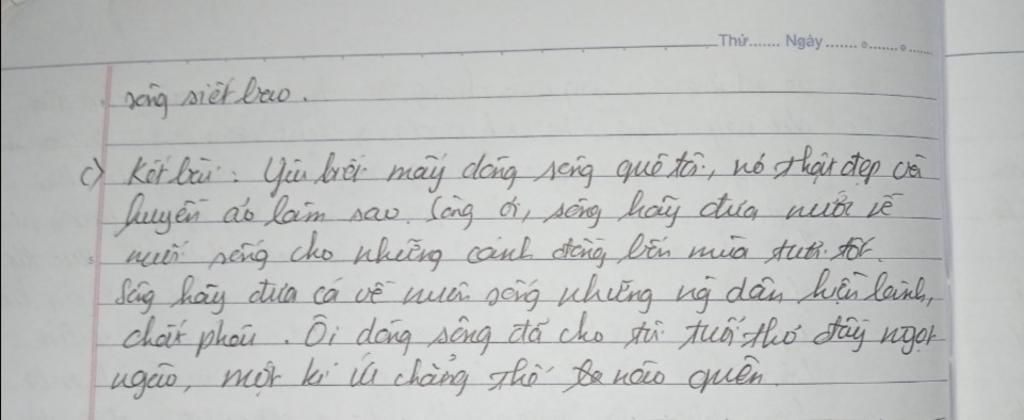 Thứ....... Ngày....... o....... o......
sông siết bao.
c) Kết bài: Yêu biết mấy dòng sông quê tôi, nó thật đẹp và
huyền ảo làm sao. Sông ơi, sông hãy đưa nước về
nuôi sống cho những cánh đồng bốn mùa tươi tốt.
Sông hãy đưa cá về nuôi sống những ng dân hiền lành,
chất phác. Ôi dòng sông đã cho tôi tuổi thơ đầy ngọt
ngào, một kí ức chẳng thể nào quên.